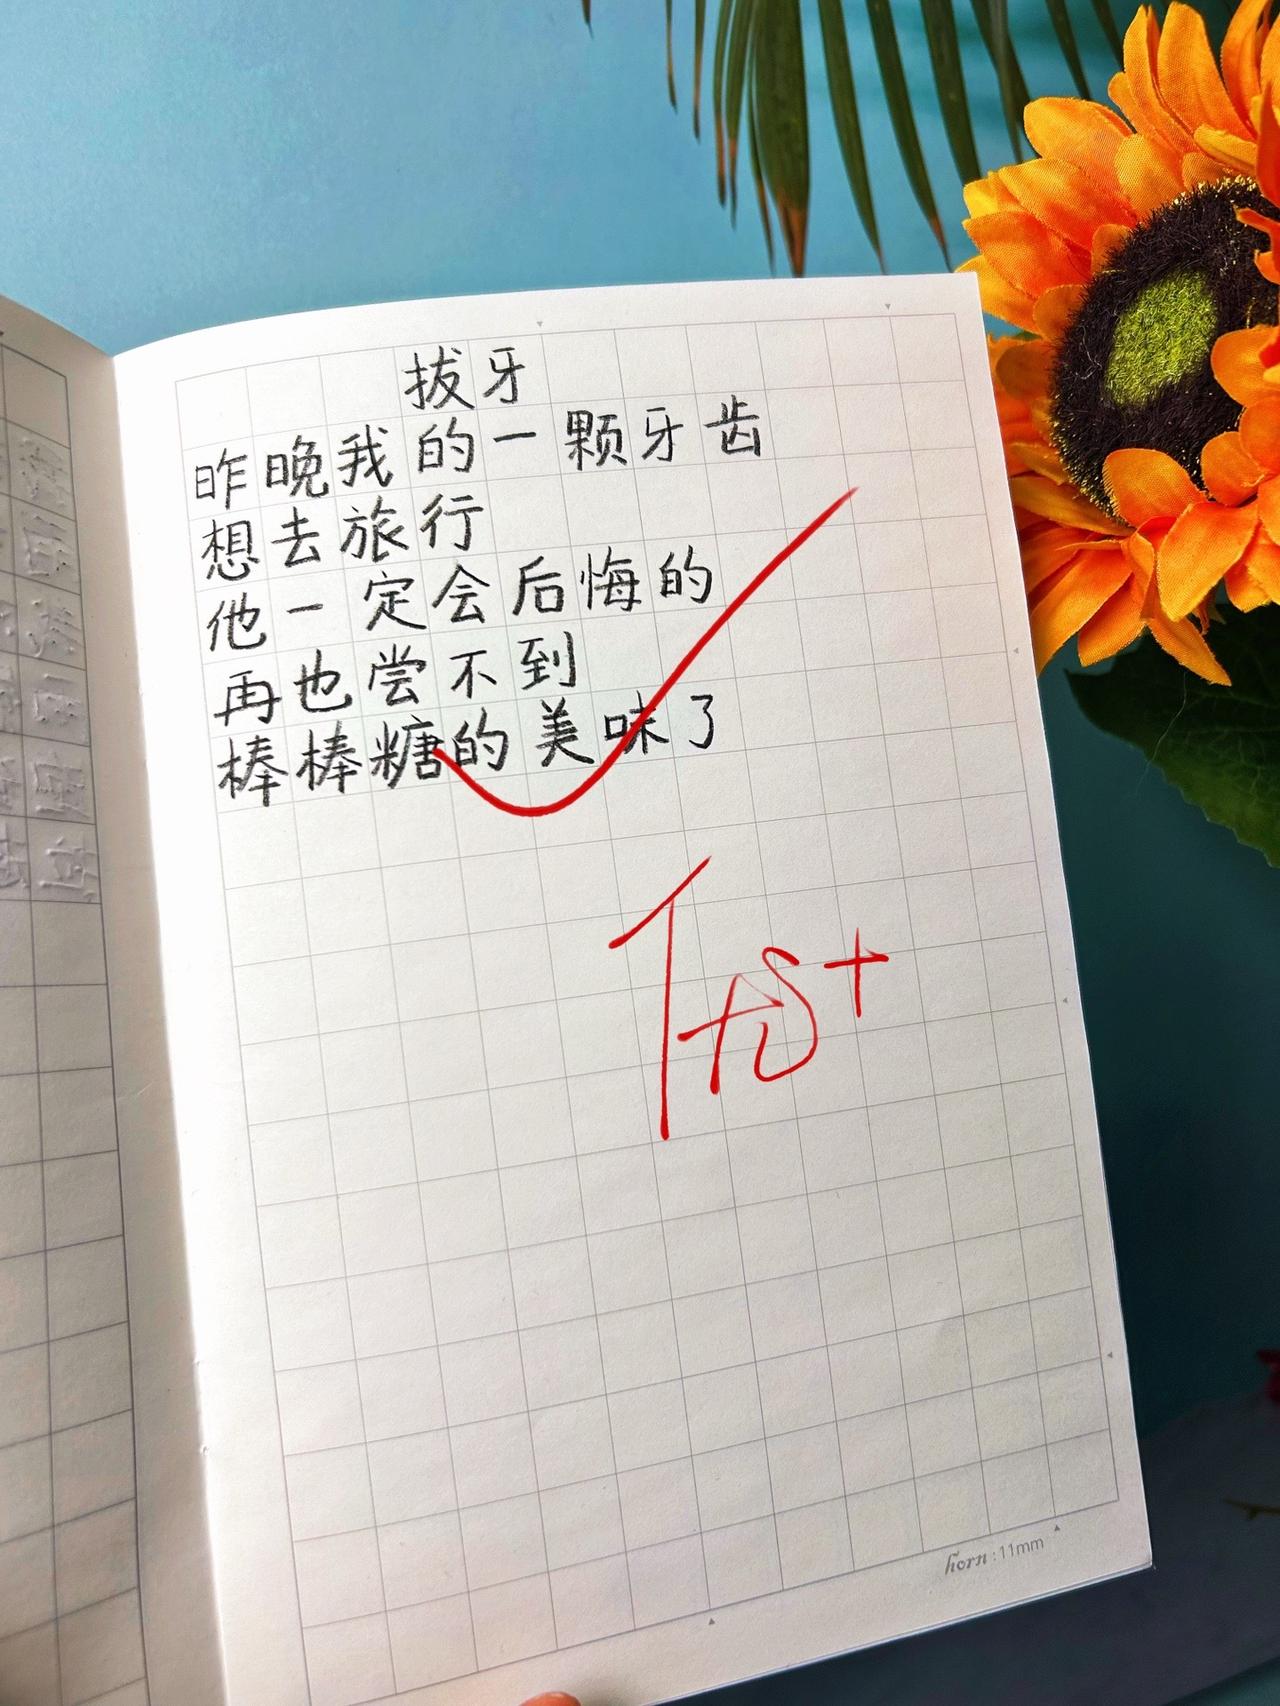 拔牙
昨晚我的一颗牙齿
想去旅行
他一定会后悔的
再也尝不到
棒棒糖的美味了
horn:11mm